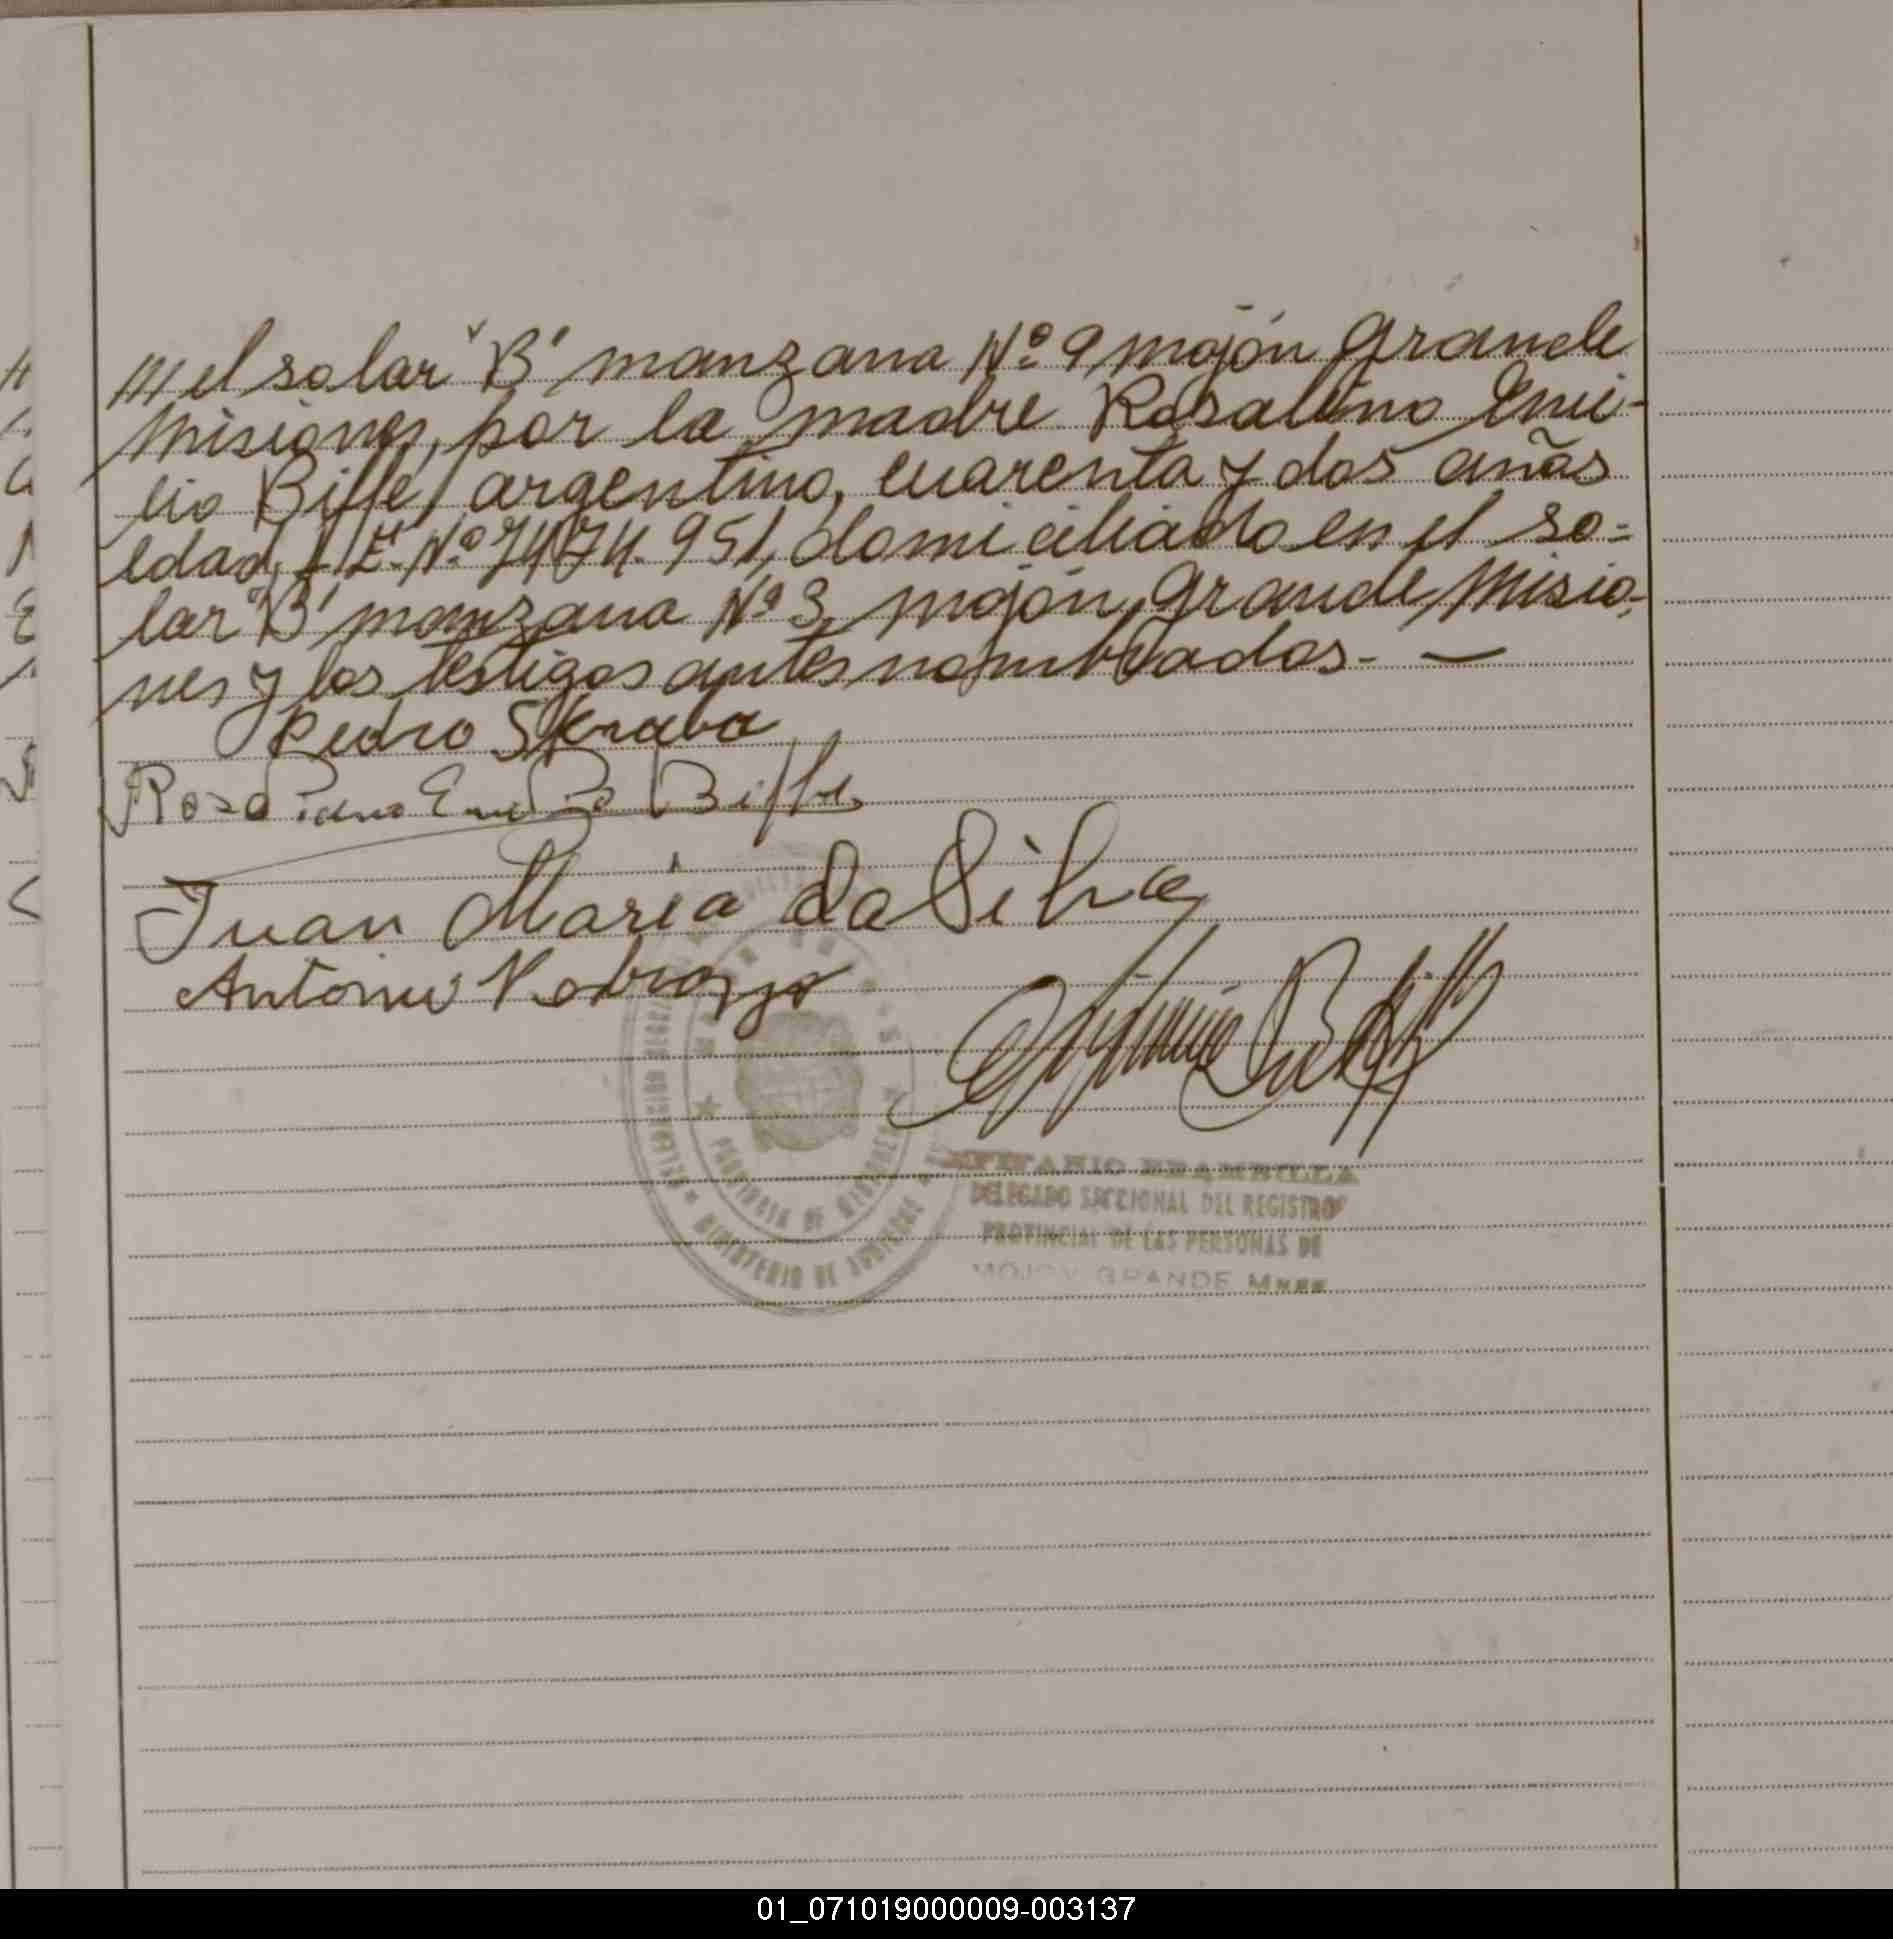 en el solar "B" manzana Nº 9, mojón Grande
Misiones, por la madre Rosalino Emi-
lio Biffe, argentino, cuarenta y dos años
edad, L.E. Nº 7474.951, domiciliado en el so-
lar "B" manzana Nº 3, mojón Grande, Misio-
nes y los testigos antes nombrados. —
Pedro Skraba
Emilio Biffe
Juan Maria da Silva
Antonio
BRAMBILLA
DELEGADO SECCIONAL DEL REGISTRO
PROVINCIAL DE LAS PERSONAS DE
MOJON GRANDE Mnes
PROVINCIA DE MISIONES
MINISTERIO DE
01_071019000009-003137